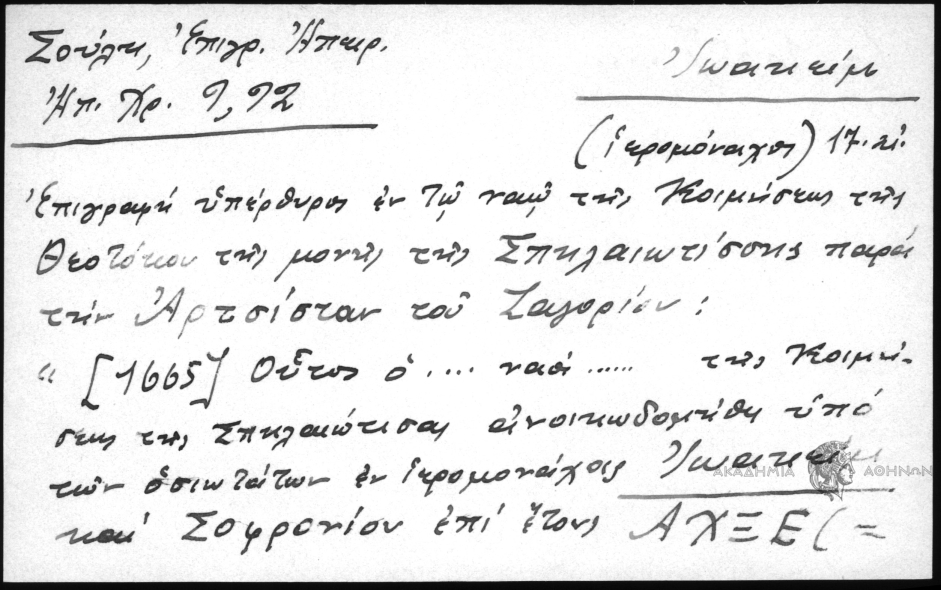 Σούλη, Ἐπιγρ. Ἠπειρ.
Ἠπ. Χρ. 9, 92
Ἰωακείμ
(ἱερομόναχος) 17. αἰ.
Ἐπιγραφή ὑπέρθυρος ἐν τῷ ναῷ τῆς Κοιμήσεως τῆς
Θεοτόκου τῆς μονῆς τῆς Σπηλαιωτίσσης παρά
τήν Ἀρτσίσταν τοῦ Ζαγορίου:
"[1665] Οὗτος ὁ .... ναό ...... τῆς Κοιμή-
σεως τῆς Σπηλαιώτισας ἀνοικωδομήθη ὑπό
τῶν ὁσιωτάτων ἐν ἱερομονάχοις Ἰωακείμ
καί Σοφρονίου ἐπί ἔτους ΑΧΞΕ (=
ΑΚΑΔΗΜΙΑ ΑΘΗΝΩΝ